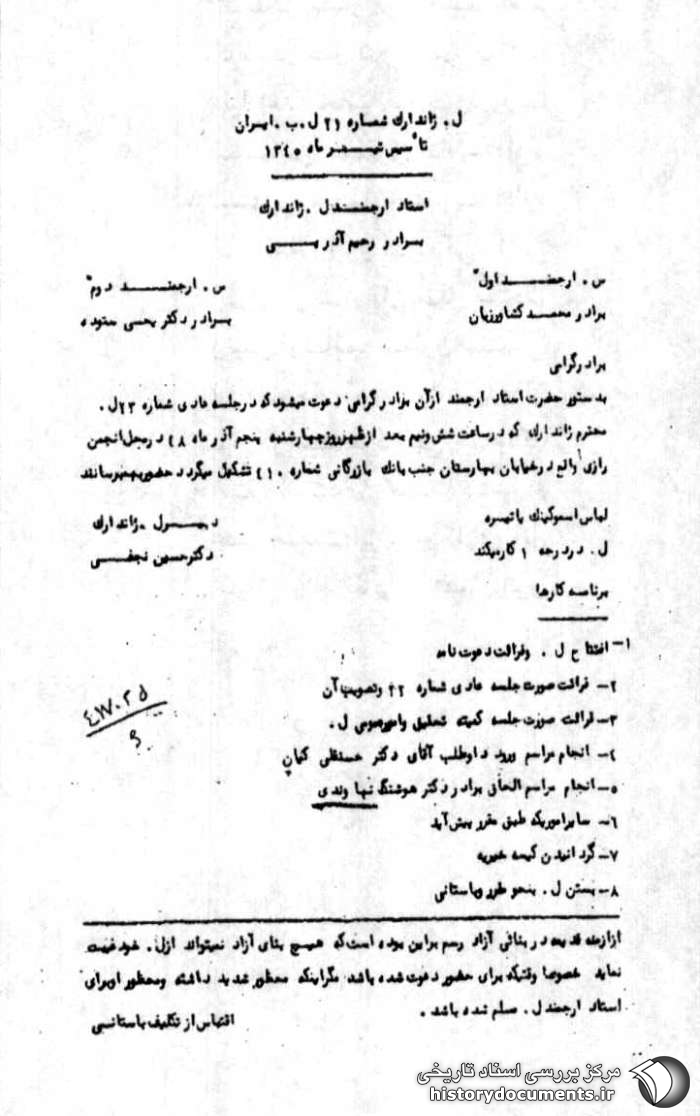 ل. ژاندارك شماره ۲۱ ل. ب. ایران
تأسیس تیر ماه ۱۳۴۰
استاد ارجمند ل. ژاندارك
برادر رحیم آذری
س. ارجمند اول
س. ارجمند دوم
برادر محمد کشاورزیان
برادر دکتر یحیی ستوده
برادر گرامی
بدستور حضرت استاد ارجمند ازآن برادر گرامی دعوت میشود که در جلسه عادی شماره ۲۳ ل.
محترم ژاندارك که در ساعت شش ونیم بعد ازظهر روز چهارشنبه پنجم آذر ماه ۴۸ در محل انجمن
رازی واقع در خیابان بهارستان جنب بانك بازرگانی شماره ۴۱۰ تشکیل میگردد حضور بهم رسانند
لباس اسموکینك یا تیره
دبیر ل. ژاندارك
ل. در درجه ۱ کار میکند
دکتر حسین نجفی
برنامه کارها
۱- افتتاح ل. وقرائت دعوت نامه
۲- قرائت صورت جلسه عادی شماره ۲۲ وتصویب آن
۳- قرائت صورت جلسه کمیته تحقیق وامور عمومی ل.
۴- انجام مراسم ورود داوطلب آقای دکتر حسنقلی کیان
۵- انجام مراسم الحاق برادر دکتر هوشنگ نهاوندی
۶- سایر اموریکه طبق مقرر پیش آید
۷- گردانیدن کیسه خیریه
۸- بستن ل. بنحو طرز وباستانی
ازازمنه قدیمه در بنائی آزاد رسم براین بوده است که هیچ بنای آزاد نمیتواند ازل. خود غیبت
نماید خصوصا وقتیکه برای حضور دعوت شده باشد مگراینکه معظور شدید داشته ومعظور اوبرای
استاد ارجمند ل. مسلم شده باشد.
اقتباس از تکلیف باستانی
مرکز بررسی اسناد تاریخی
historydocuments.ir